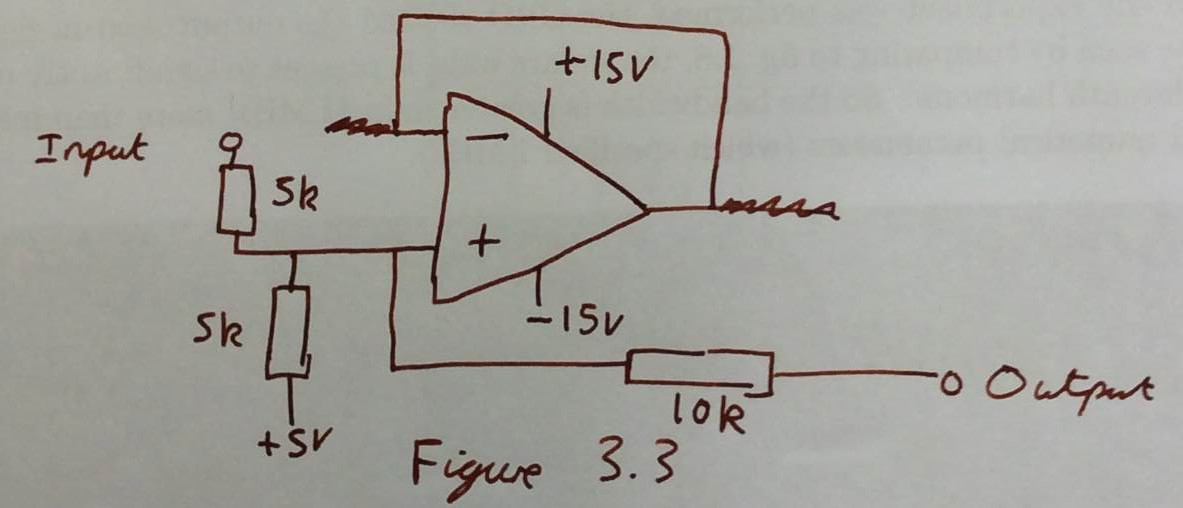 +15V
Input
5k
−
+
5k
-15V
10k
Output
+5V
Figure 3.3